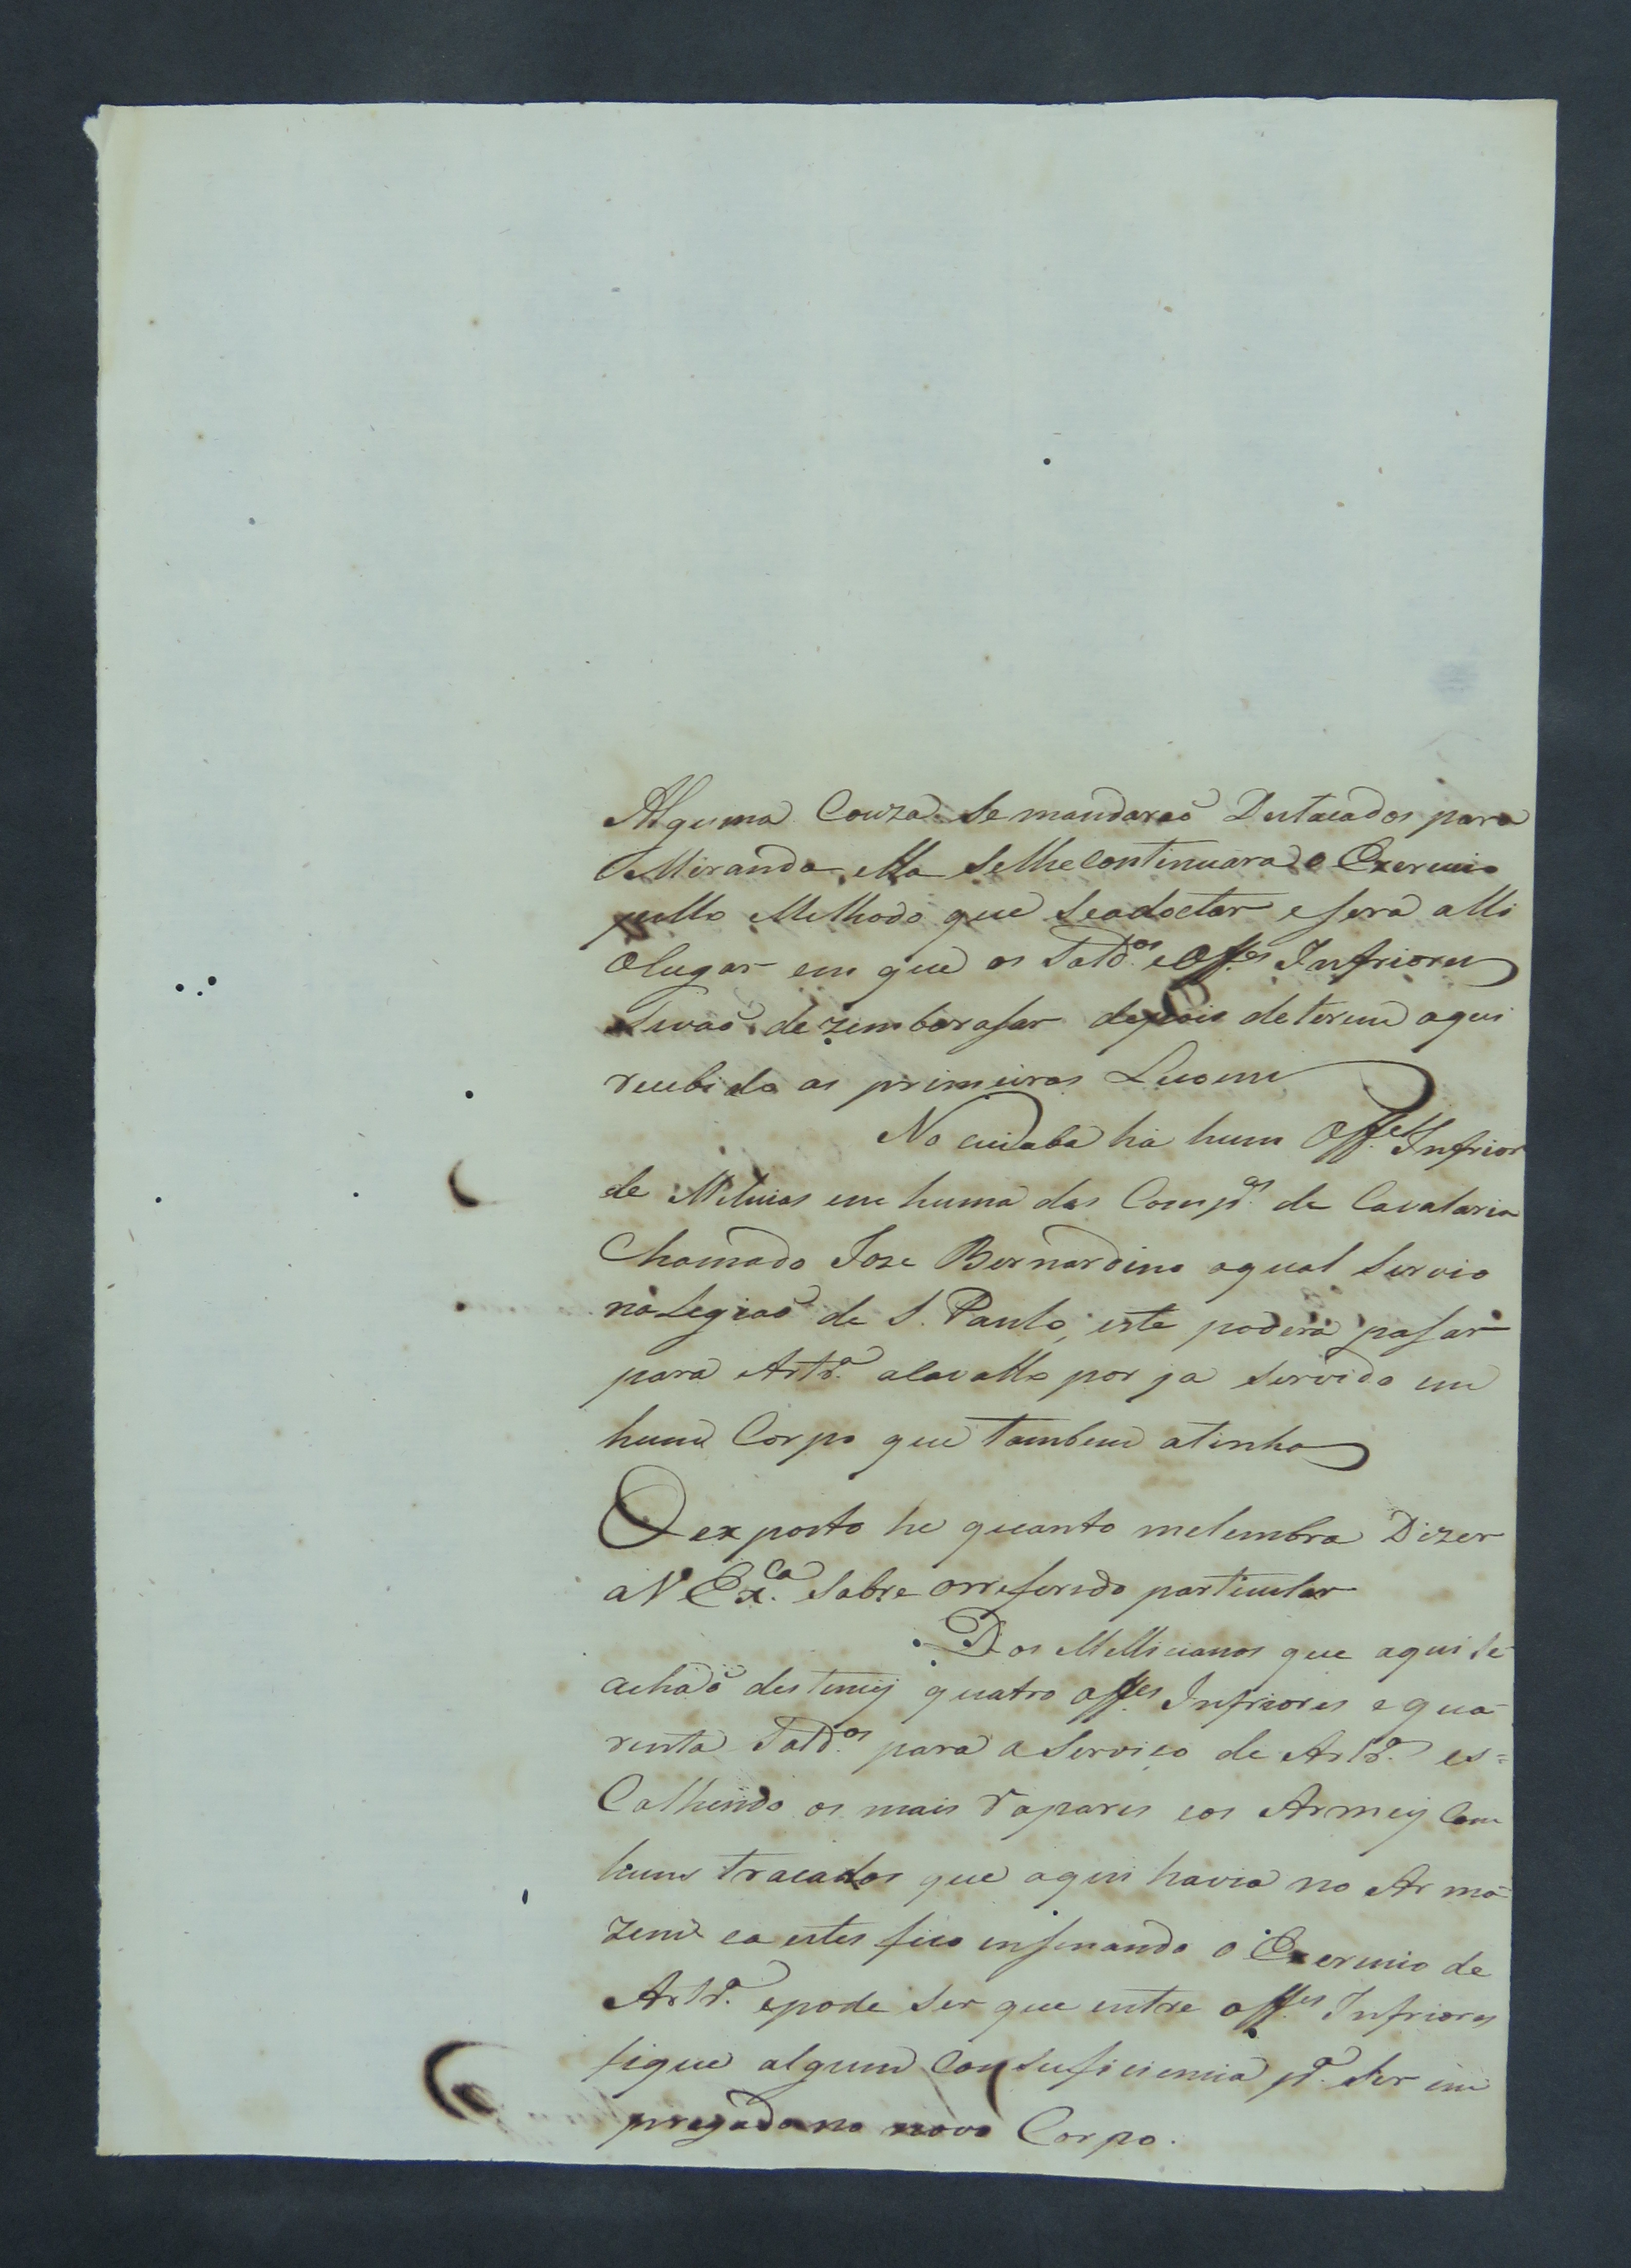 Alguma Couza se mandaraõ Destacados para
Miranda, ella selhe continuara o Exercicio
pello Methodo que seadoctar esera alli
Olugar em que os Sold.os e Off.es Infriores
Sevaõ dezembarasar depois deterem aqui
recebido as primeiras Licoens
No cuiaba há hum Off.el Infrior
de Milicias em huma das Comp.as de Cavalaria
Chamado Joze Bernardino oqual servio
na Legiaõ de S. Paulo, este poderá pasar
para Artr.a aCavallo por ja servido em
hum Corpo que tambem atinha
O exposto he quanto melembra Dizer
a V Ex.ca sobre orreferido particular
Dos Millicianos que aqui se
achaõ destiney quatro off.es Infriores e qua
renta Sold.os para o Serviço de Artr.a es=
Colhendo os mais rapazes eos Armey Com
huns tracados que aqui havia no Arma
zem ea estes fico insinando o Exercicio de
Artr.a epode ser que entre off.es Infriores
fique algum Con suficiencia p.a Ser im
pregado no novo Corpo.